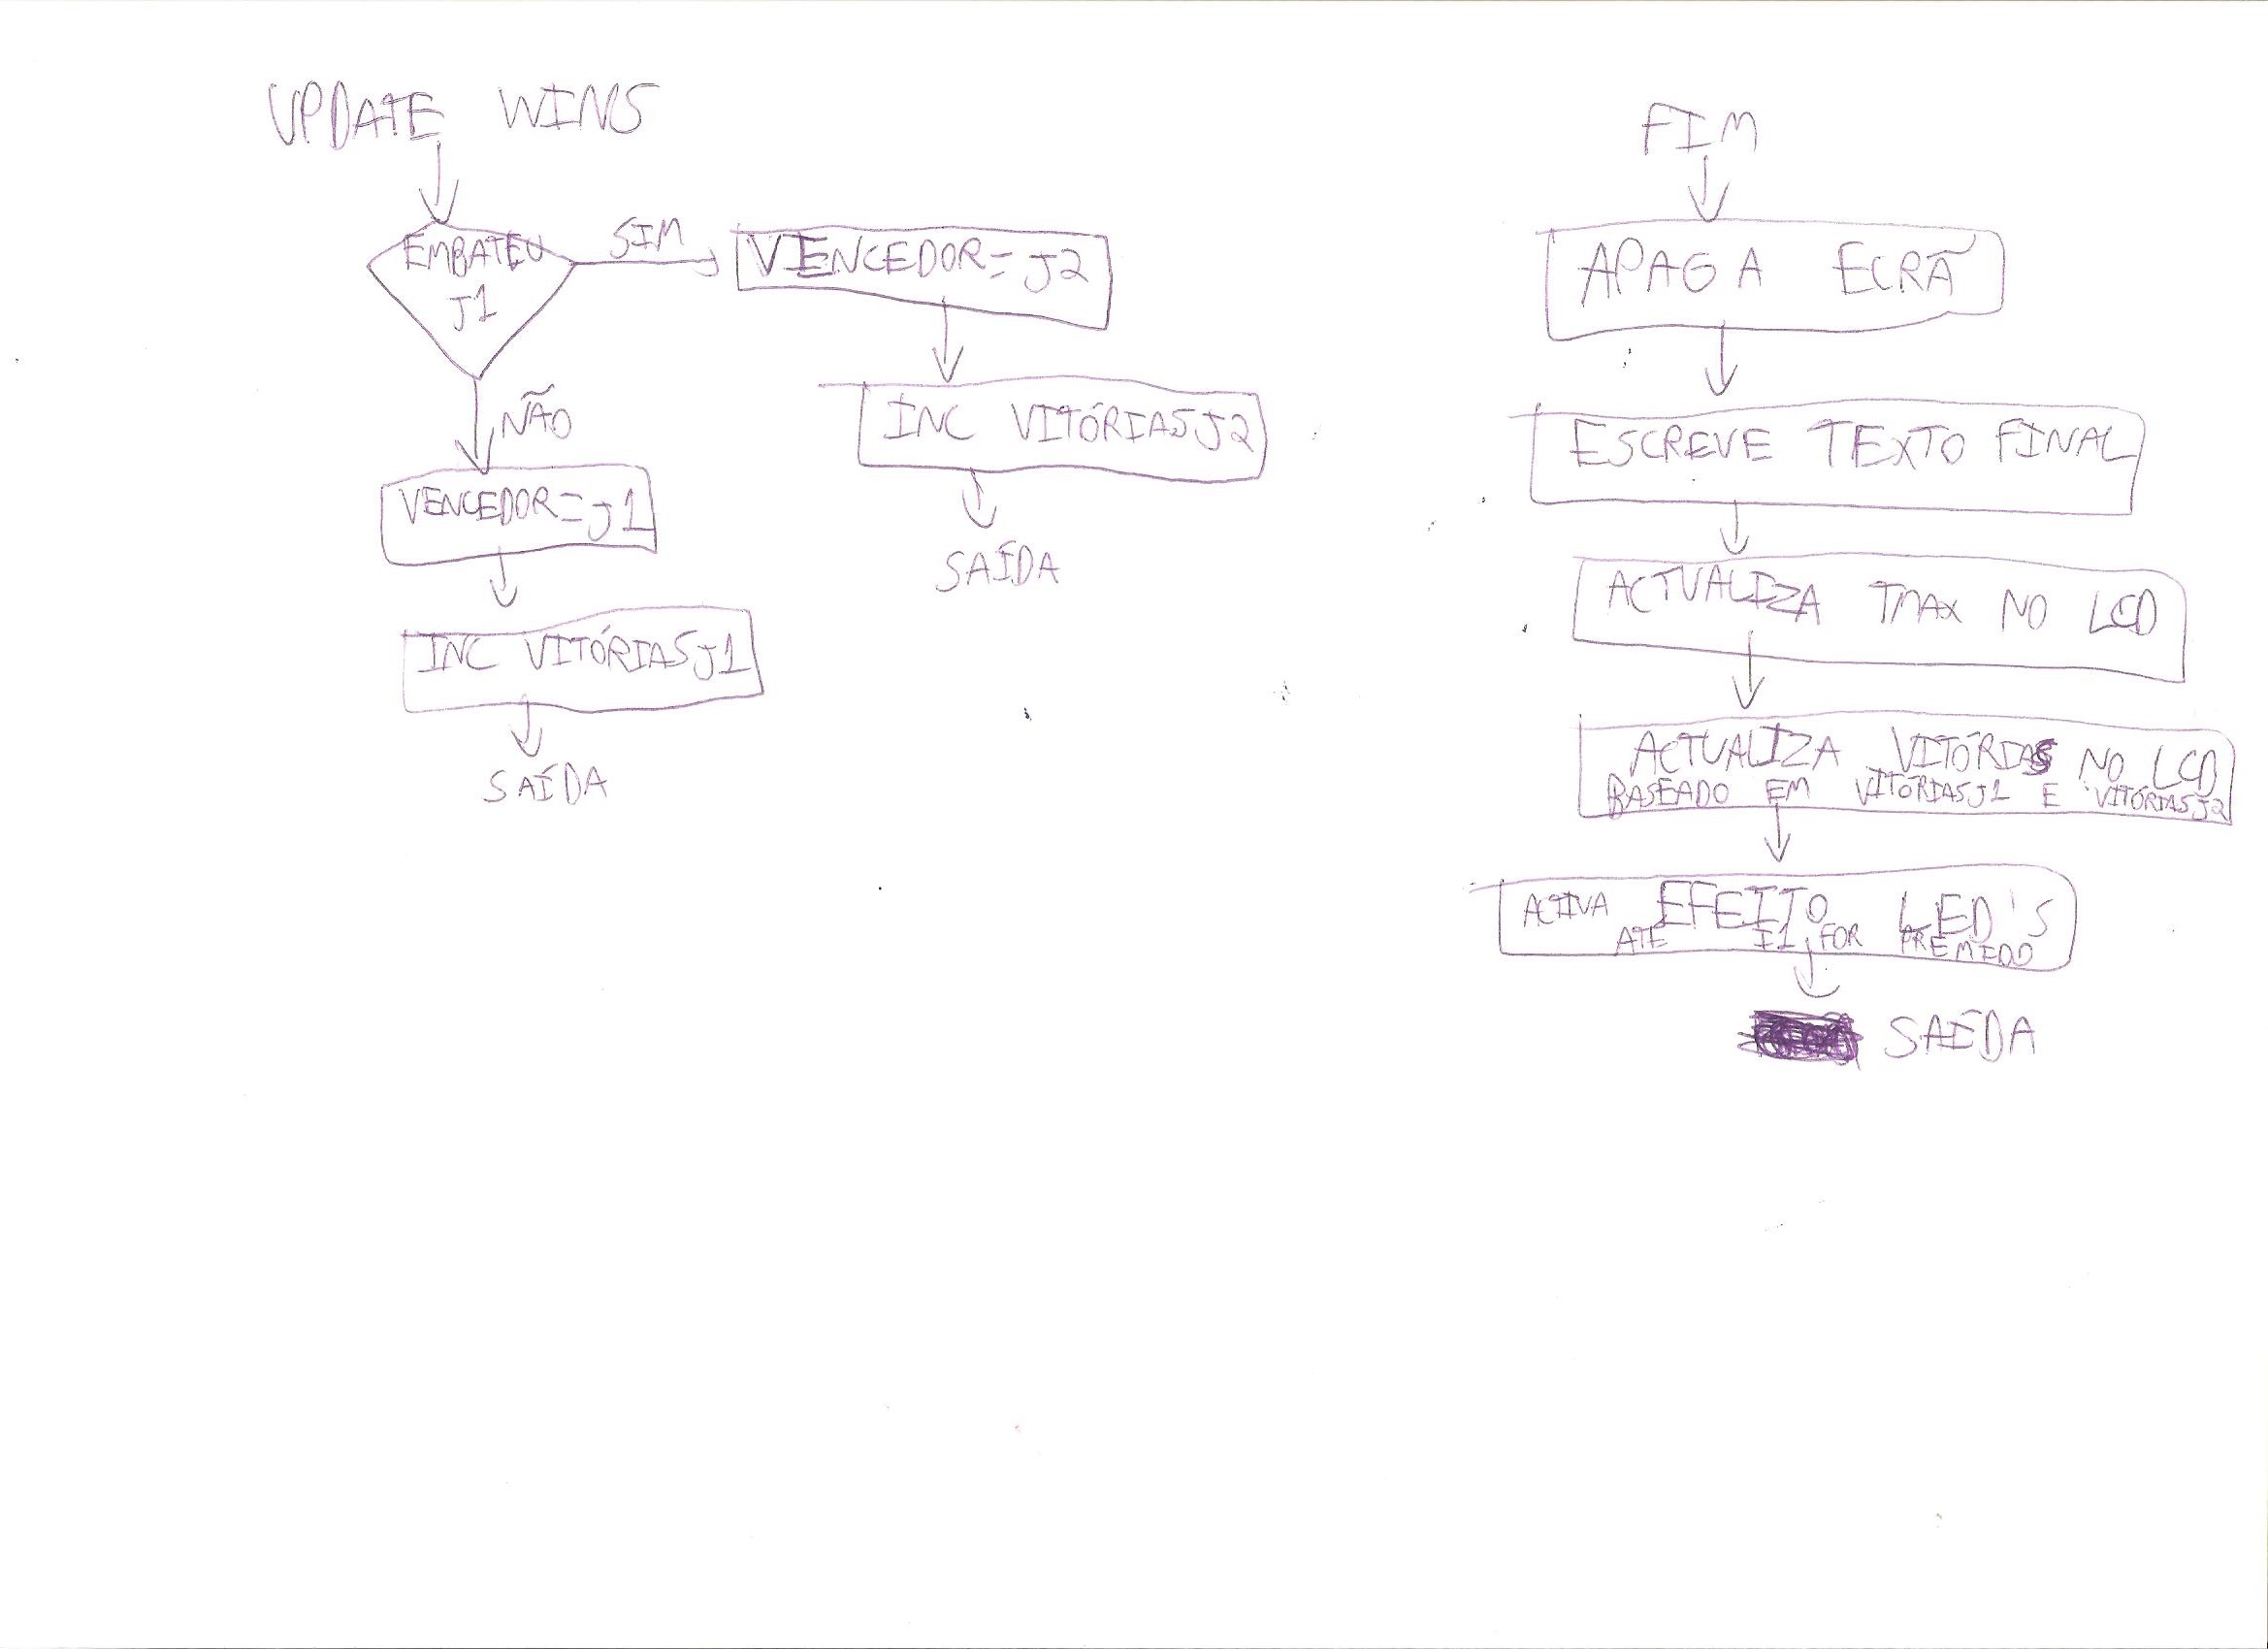 UPDATE WINS
EMBATEU
J1
SIM
VENCEDOR=J2
INC VITÓRIASJ2
SAÍDA
NÃO
VENCEDOR=J1
INC VITÓRIASJ1
SAÍDA
FIM
APAGA ECRÃ
ESCREVE TEXTO FINAL
ACTUALIZA TMAX NO LCD
ACTUALIZA VITÓRIAS NO LCD
BASEADO EM VITÓRIASJ1 E VITÓRIASJ2
ACTIVA EFEITO LED'S
ATE I1 FOR PREMIDO
SAÍDA